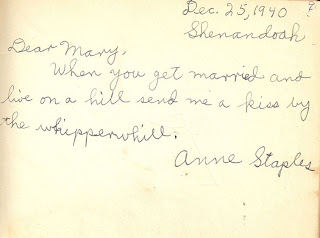 Dec. 25, 1940
Shenandoah
Dear Mary,
When you get married and
live on a hill send me a kiss by
the whipperwhill.
Anne Staples